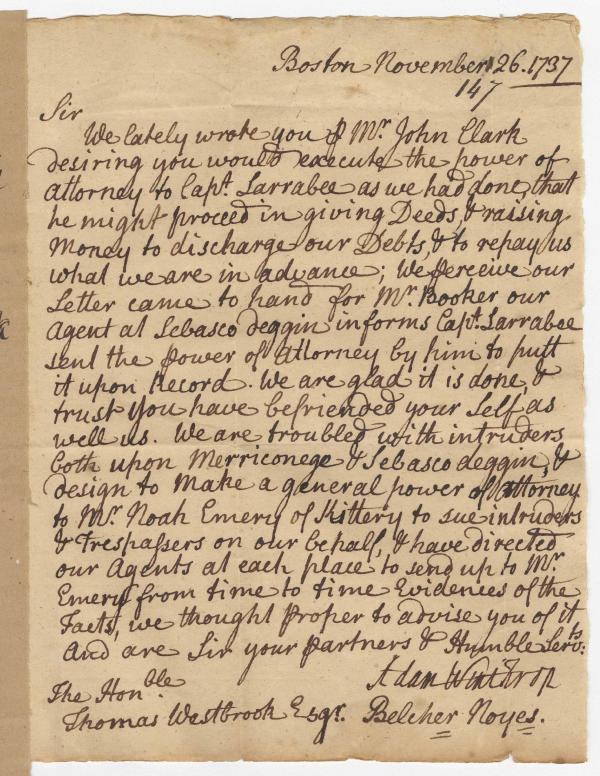 Boston November 26. 1737
147
Sir
We lately wrote you ⅌ Mr. John Clark
desiring you would execute the power of
attorney to Capt. Larrabee as we had done, that
he might proceed in giving Deeds, & raising
Money to discharge our Debts, & to repay us
what we are in advance; We perceive our
Letter came to hand for Mr. Booker our
Agent at Sebascodeggin informs Capt. Larrabee
sent the power of Attorney by him to putt
it upon Record. We are glad it is done, &
trust you have befriended your Self as
well us. We are troubled with intruders
both upon Merriconege & Sebascodeggin, &
design to make a general power of attorney
to Mr. Noah Emery of Kittery to sue intruders
& Trespassers on our behalf, & have directed
our Agents at each place to send up to Mr.
Emery from time to time Evidences of the
Facts, we thought proper to advise you of it
And are Sir your Partners & Humble Servts:
Adam Winthrop
The Honble
Thomas Westbrook Esqr. Belcher Noyes.